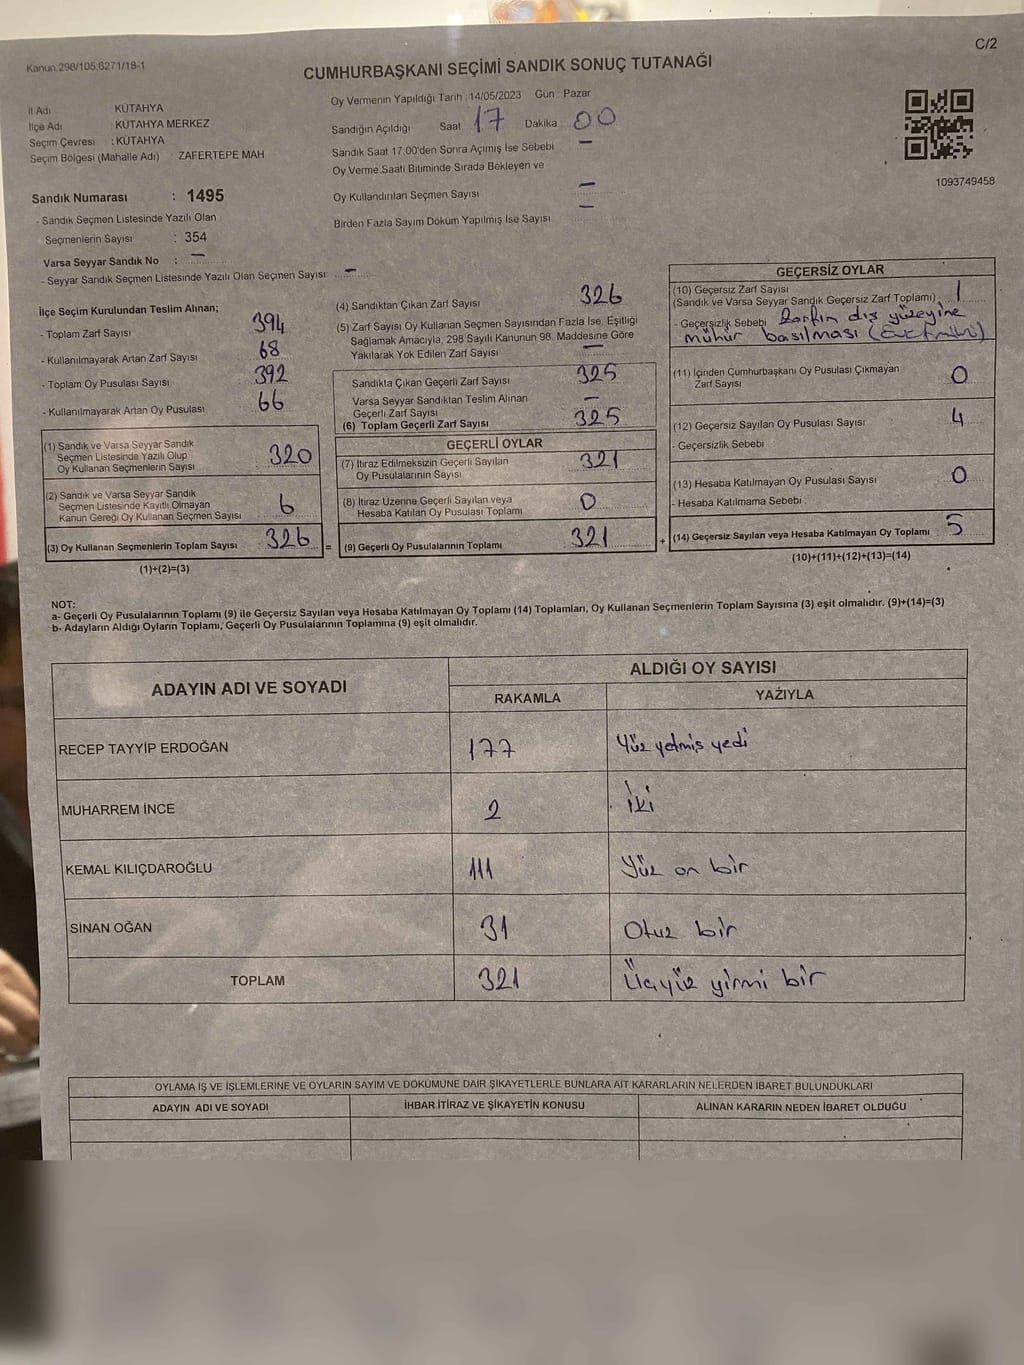 Kanun:298/105,6271/18-1
C/2
CUMHURBAŞKANI SEÇİMİ SANDIK SONUÇ TUTANAĞI
İl Adı KÜTAHYA
İlçe Adı KÜTAHYA MERKEZ
Seçim Çevresi : KÜTAHYA
Seçim Bölgesi (Mahalle Adı) : ZAFERTEPE MAH
Oy Vermenin Yapıldığı Tarih : 14/05/2023 Gün : Pazar
Sandığın Açıldığı Saat 17 Dakika 00
Sandık Saat 17:00'den Sonra Açımış İse Sebebi —
Oy Verme Saati Bitiminde Sırada Bekleyen ve
Oy Kullandırılan Seçmen Sayısı —
Birden Fazla Sayım Döküm Yapılmış İse Sayısı —
1093749458
Sandık Numarası : 1495
- Sandık Seçmen Listesinde Yazılı Olan
Seçmenlerin Sayısı : 354
Varsa Seyyar Sandık No : —
- Seyyar Sandık Seçmen Listesinde Yazılı Olan Seçmen Sayısı: —
İlçe Seçim Kurulundan Teslim Alınan;
- Toplam Zarf Sayısı 394
- Kullanılmayarak Artan Zarf Sayısı 68
- Toplam Oy Pusulası Sayısı 392
- Kullanılmayarak Artan Oy Pusulası 66
(1) Sandık ve Varsa Seyyar Sandık
Seçmen Listesinde Yazılı Olup
Oy Kullanan Seçmenlerin Sayısı 320
(2) Sandık ve Varsa Seyyar Sandık
Seçmen Listesinde Kayıtlı Olmayan
Kanun Gereği Oy Kullanan Seçmen Sayısı 6
(3) Oy Kullanan Seçmenlerin Toplam Sayısı 326
(1)+(2)=(3)
(4) Sandıktan Çıkan Zarf Sayısı 326
(5) Zarf Sayısı Oy Kullanan Seçmen Sayısından Fazla İse, Eşitliği
Sağlamak Amacıyla, 298 Sayılı Kanunun 98. Maddesine Göre
Yakılarak Yok Edilen Zarf Sayısı —
Sandıkta Çıkan Geçerli Zarf Sayısı 325
Varsa Seyyar Sandıktan Teslim Alınan
Geçerli Zarf Sayısı —
(6) Toplam Geçerli Zarf Sayısı 325
GEÇERLİ OYLAR
(7) İtiraz Edilmeksizin Geçerli Sayılan
Oy Pusulalarının Sayısı 321
(8) İtiraz Üzerine Geçerli Sayılan veya
Hesaba Katılan Oy Pusulası Toplamı 0
= (9) Geçerli Oy Pusulalarının Toplamı 321
GEÇERSİZ OYLAR
(10) Geçersiz Zarf Sayısı
(Sandık ve Varsa Seyyar Sandık Geçersiz Zarf Toplamı) 1
- Geçersizlik Sebebi Zarfın dış yüzeyine
mühür basılması
(11) İçinden Cumhurbaşkanı Oy Pusulası Çıkmayan
Zarf Sayısı 0
(12) Geçersiz Sayılan Oy Pusulası Sayısı 4
- Geçersizlik Sebebi
(13) Hesaba Katılmayan Oy Pusulası Sayısı 0
- Hesaba Katılmama Sebebi :
+ (14) Geçersiz Sayılan veya Hesaba Katılmayan Oy Toplamı 5
(10)+(11)+(12)+(13)=(14)
NOT:
a- Geçerli Oy Pusulalarının Toplamı (9) ile Geçersiz Sayılan veya Hesaba Katılmayan Oy Toplamı (14) Toplamları, Oy Kullanan Seçmenlerin Toplam Sayısına (3) eşit olmalıdır. (9)+(14)=(3)
b- Adayların Aldığı Oyların Toplamı, Geçerli Oy Pusulalarının Toplamına (9) eşit olmalıdır.
ADAYIN ADI VE SOYADI
ALDIĞI OY SAYISI
RAKAMLA YAZIYLA
RECEP TAYYİP ERDOĞAN 177 Yüz yetmiş yedi
MUHARREM İNCE 2 İki
KEMAL KILIÇDAROĞLU 111 Yüz on bir
SİNAN OĞAN 31 Otuz bir
TOPLAM 321 Üçyüz yirmi bir
OYLAMA İŞ VE İŞLEMLERİNE VE OYLARIN SAYIM VE DÖKÜMÜNE DAİR ŞİKAYETLERLE BUNLARA AİT KARARLARIN NELERDEN İBARET BULUNDUKLARI
ADAYIN ADI VE SOYADI İHBAR İTİRAZ VE ŞİKAYETİN KONUSU ALINAN KARARIN NEDEN İBARET OLDUĞU